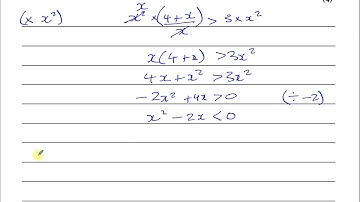 (4)
(× x²) x x² × (4+x)/x > 3 × x²
x(4+x) > 3x²
4x + x² > 3x²
-2x² + 4x > 0 (÷ -2)
x² - 2x < 0